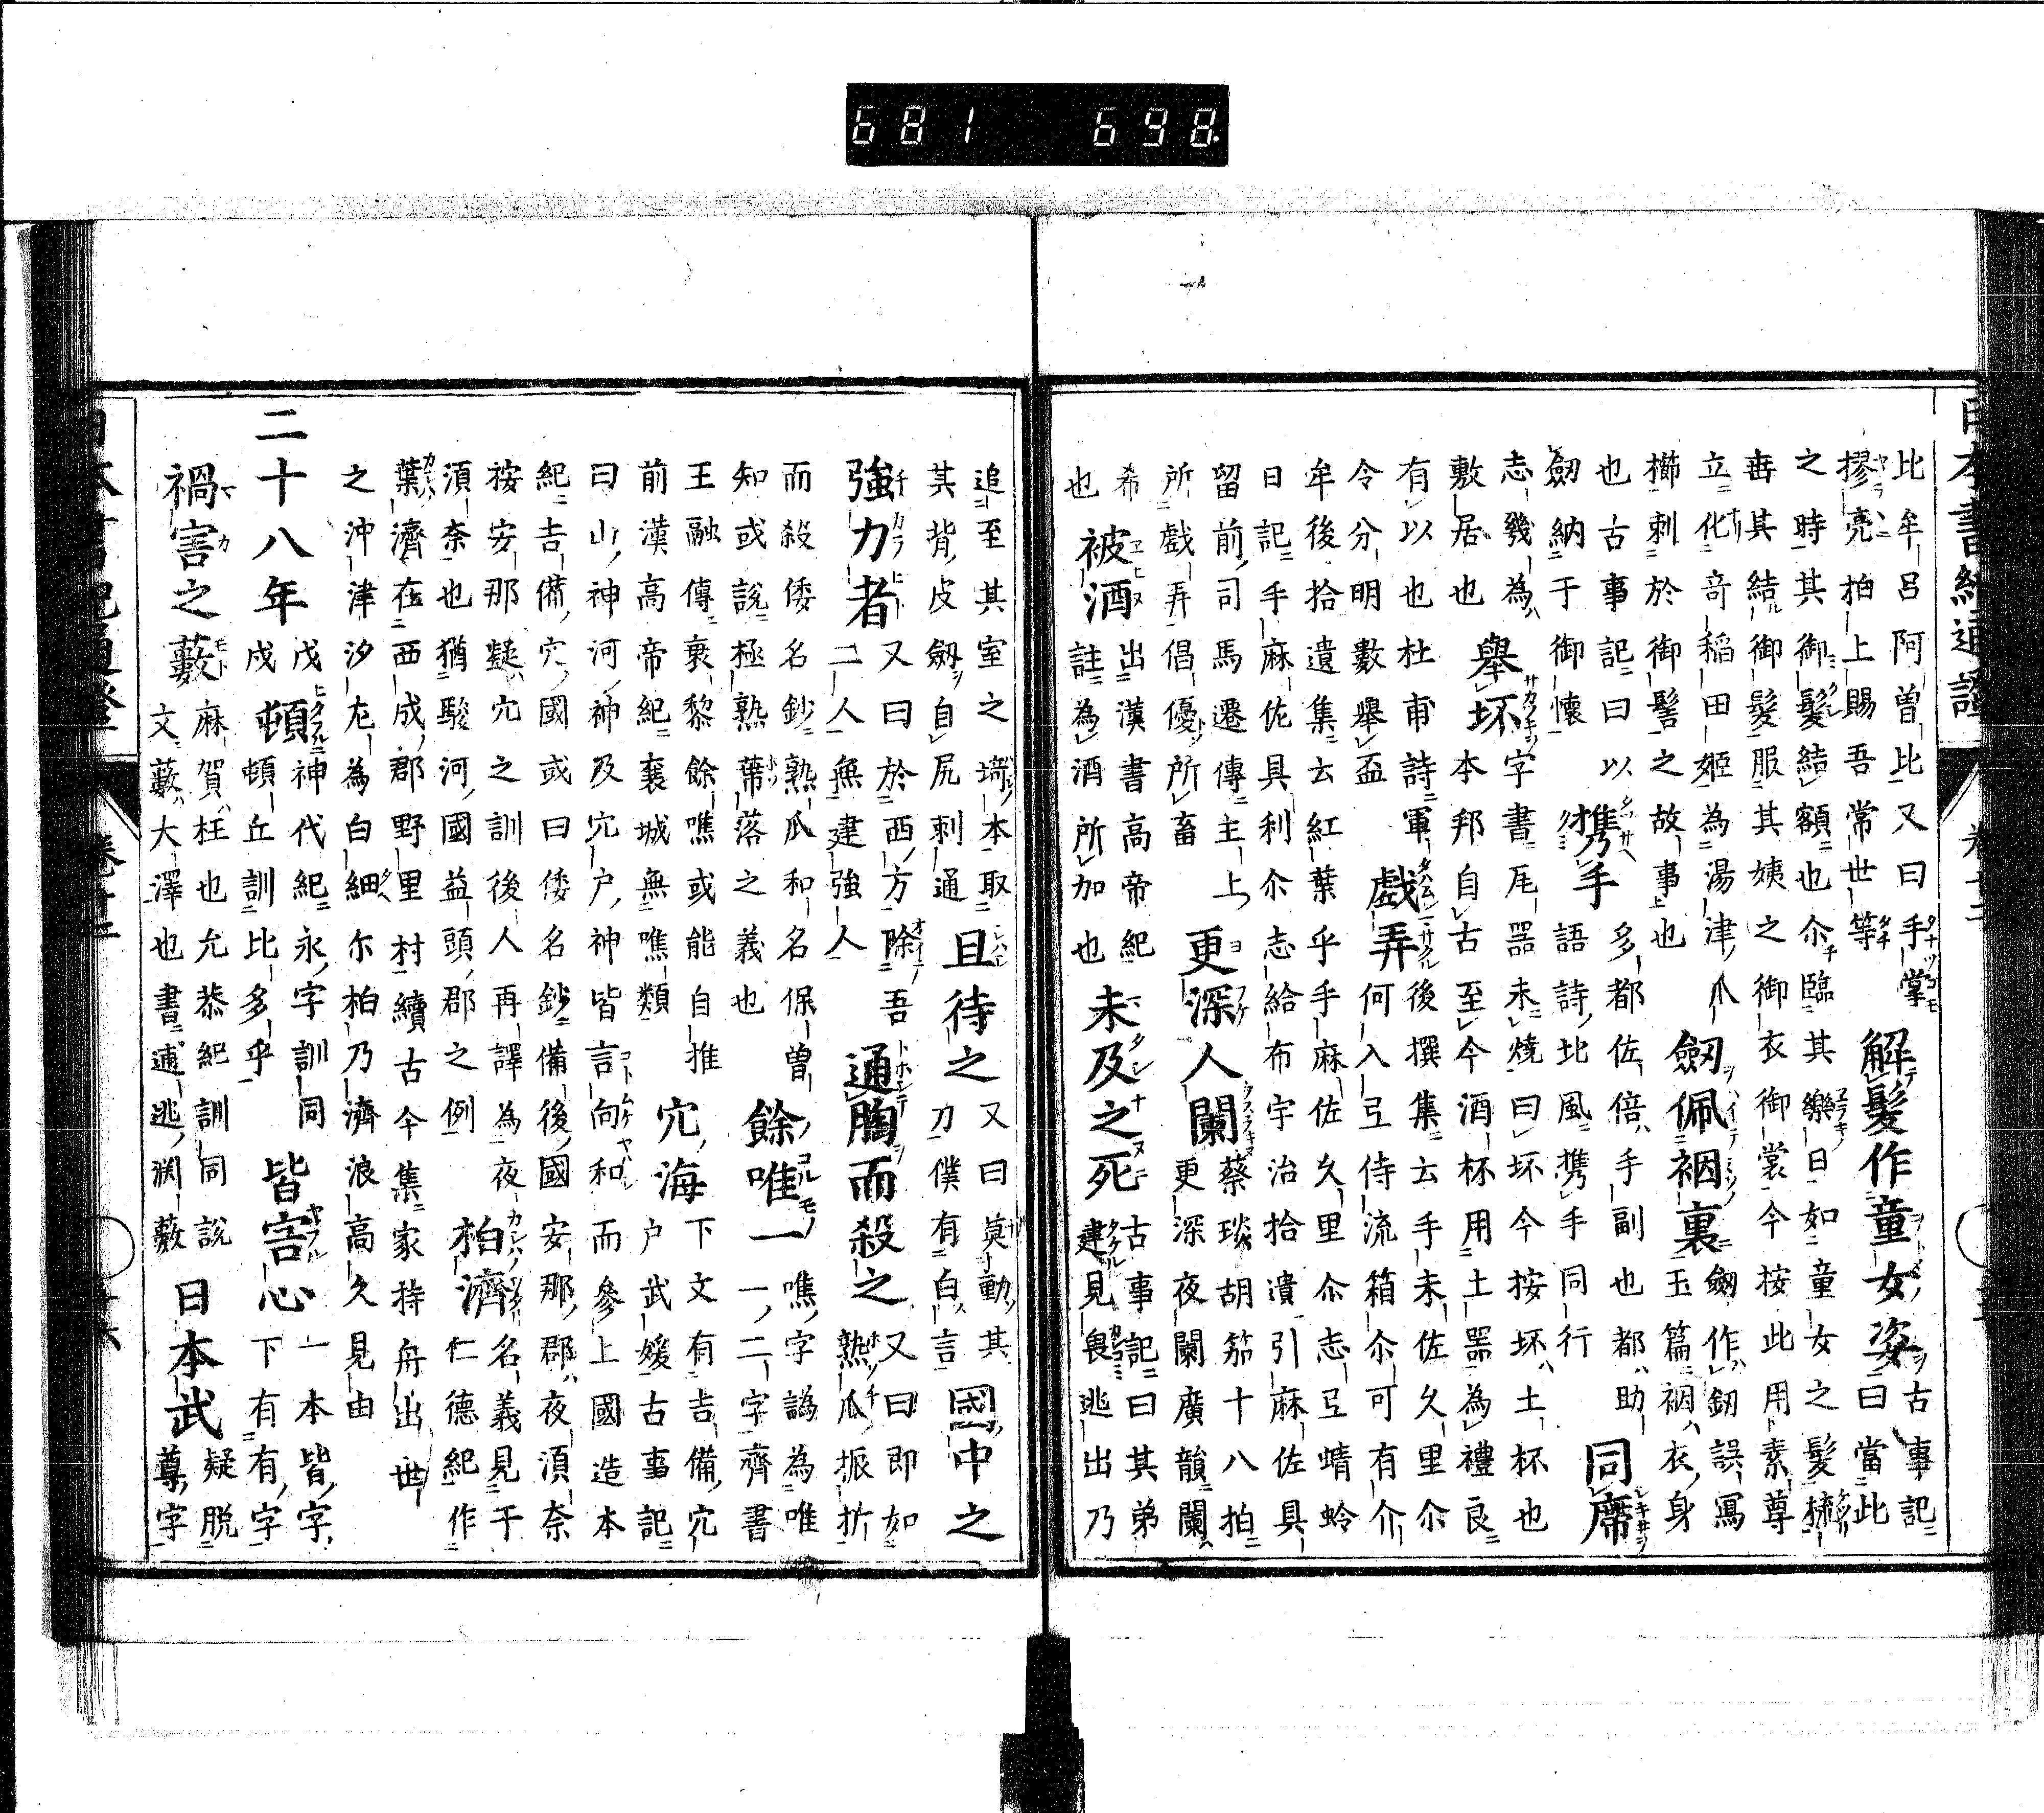 日本書紀通證
比牟呂阿曽比又曰手掌
摎亮拍上賜吾常世等
解髮作童女姿
古事記
曰當此
之時其御髮結額也尒臨其樂日如童女之髮梳
垂其結御髮服其姨之御衣御裳今按此用素尊
立化竒稲田姫為湯津爪
櫛刺於御髻之故事也
劒佩裀裏
劒作釼誤寫
玉篇裀衣身
也古事記曰以
劒納于御懐
携手
多都佐倍手副也都助
語詩北風携手同行
同席
志發為
敷居也
擧坏
字書㞍噐未燒曰坏今按坏土杯也
本邦自古至今酒杯用土噐為禮良
有以也杜甫詩軍
令分明數擧盃
戲弄
後撰集云手未佐久里尓
何入弖侍流箱尒可有介
牟後拾遺集云紅葉乎手麻佐久里尒志弖蜻蛉
日記手麻佐具利尒志給布宇治拾遺引麻佐具
留前司馬遷傳主上
所戲弄倡優所畜
更深人闌
蔡琰胡笳十八拍
更深夜闌廣韻闌
希
也
被酒
出漢書高帝紀
註為酒所加也
未及之死
古事記曰其弟
建見畏逃出乃
追至其室之埼本取
其背皮劒自尻刺通
且待之
又曰莫動其
刀僕有白言
國中之
強力者
又曰於西方除吾
二人無建強人
通胸而殺之
又曰即如
熟瓜振折
而殺倭名鈔熟瓜和名保曽
知或説極熟蔕落之義也
餘唯一
噍字譌為唯
一二字齊書
王融傳衷黎餘噍或能自推
前漢高帝紀襄城無噍類
穴海
下文有吉備穴
戸武媛古事記
曰山神河神及穴戸神皆言向和而參上國造本
紀吉備穴國或曰倭名鈔備後國安那郡夜須奈
按安那疑穴之訓後人再譯為夜
須奈也猶駿河國益頭郡之例
柏濟
名義見于
仁德紀作
葉濟在西成郡野里村續古今集家持舟出世
之沖津汐左為白細尓柏乃濟浪高久見由
二十八年
戊
戌
頓
神代紀永字訓同
頓丘訓比多乎
皆害心
一本皆字
下有有字
禍害之藪
麻賀枉也允恭紀訓同説
文藪大澤也書逋逃淵藪
日本武
疑脱
尊字
681 698